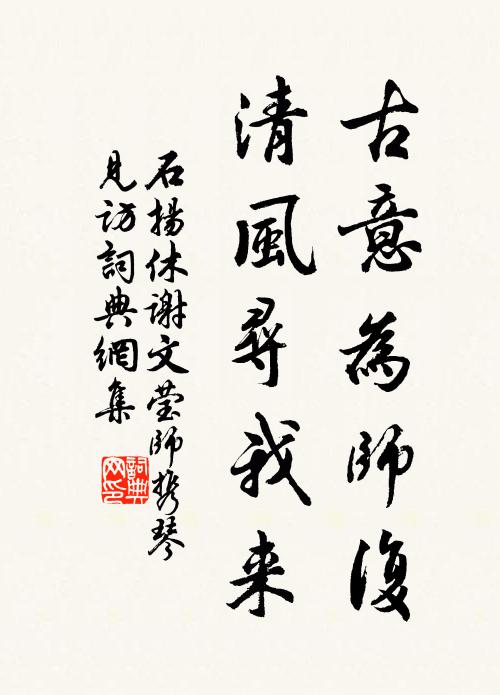 古意為師復
清風尋我来
石揚休謝文莹師携琴
見访詞典網集
詞典网印